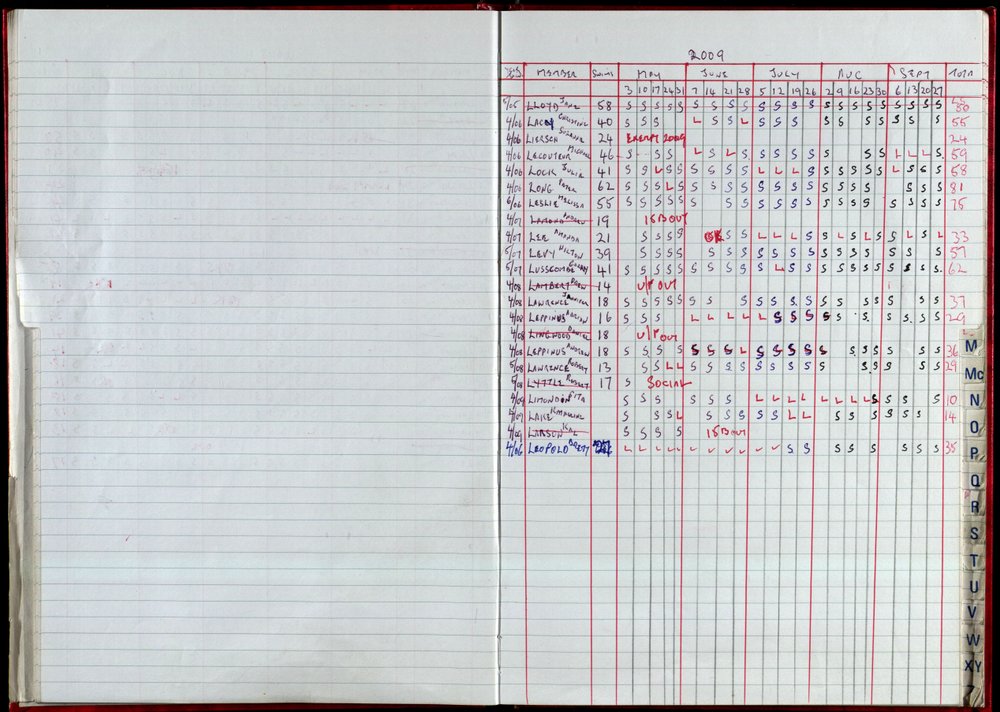 2009
MEMBER Swims MAY JUNE JULY AUG SEPT TOTAL
3 10 17 24 31 7 14 21 28 5 12 19 26 2 9 16 23 30 6 13 20 27
5/05 LLOYD JANE 58 S S S S S S S S S S S S S S S S S S S S S S 80
4/06 LACY CHRISTINE 40 S S S L S S L S S S S S S S S S S 55
4/06 LIERSCH SUZANNE 24 EXEMPT 2009 24
4/06 LECOUTEUR MICHAEL 46 S S S L S L S S S S S S S S L L L S 59
4/06 LOCK JULIA 41 S S L S S S S S S L L L S S S S S S L S S S 58
4/06 LONG PETER 62 S S S L S S S S S S S S S S S S S S S S 81
6/06 LESLIE MELISSA 55 S S S S S S S S S S S S S S S S S S S S 75
4/07 LAMOND ANDREW 19 ISB OUT
4/07 LEE AMANDA 21 S S S S S S L L L S S L S L S S L S L 33
5/07 LEVY HILTON 39 S S S S S S S S S S S S S S S S S S 57
5/07 LUSSCOMBE 41 S S S S S S S S S S L S S S S S S S S S S S 62
4/08 LAMBERT 14 U/F OUT
4/08 LAWRENCE JENNIFER 18 S S S S S S S S S S S S S S S S S S S 37
4/08 LEPPINUS ADRIAN 16 S S S L L L L L S S S S S S S S S S 29
4/08 LINGWOOD DANIEL 18 U/F OUT
4/08 LEPPINUS ANDREW 18 S S S S S S S L S S S S S S S S S S S S 36
5/08 LAWRENCE ROBERT 13 S S L L S S S S S S S S S S S S S S 29
5/08 LYTTLE ROBERT 17 S SOCIAL
4/09 LIMONDIN PITA S S S S S S L L L L L L L L S S S S 10
5/09 LAKE S S S L S S S S S S L L S S S S S S 14
4/09 LARSON KAL S S S S ISB OUT
4/06 LEOPOLD BRETT L L L L L S S S S S S S S 35
M
Mc
N
O
P
Q
R
S
T
U
V
W
XY
Z